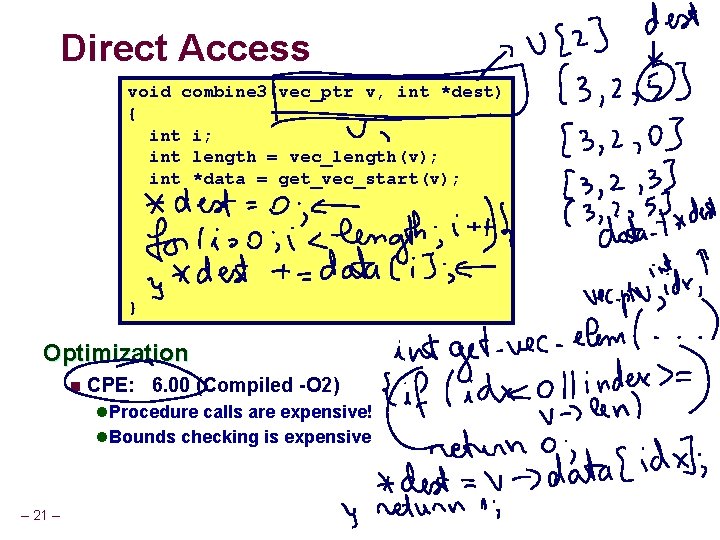 Direct Access
void combine3(vec_ptr v, int *dest)
{
int i;
int length = vec_length(v);
int *data = get_vec_start(v);
*dest = 0;
for(i=0;i<length;i++){
*dest += data[i];
}
}
Optimization
CPE: 6.00 (Compiled -O2)
Procedure calls are expensive!
Bounds checking is expensive
– 21 –
v[2] dest
[3,2,5]
[3,2,0]
[3,2,3]
[3,2,5]
data *dest
vec_ptr v, int idx,
int get_vec_elem(...)
{if (idx<0||index>=
v->len)
return 0;
*dest = v->data[idx];
} return 1;